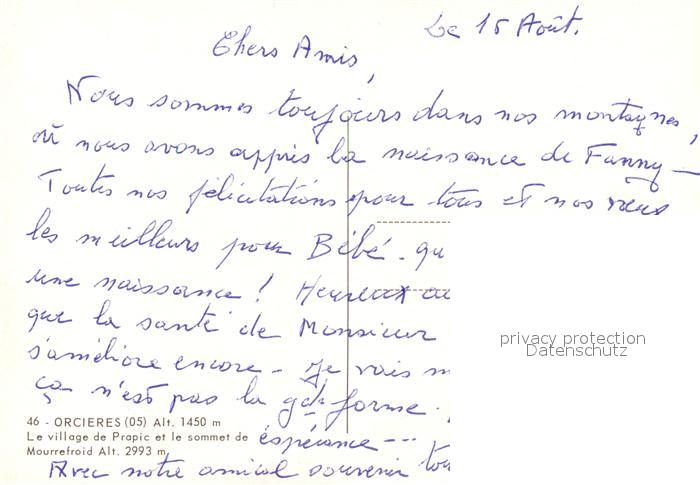 Le 15 Août.
Chers Amis,
Nous sommes toujours dans nos montagnes,
où nous avons appris la naissance de Fanny —
Toutes nos félicitations pour tous et nos vœux
les meilleurs pour Bébé - qu
une naissance ! Heureux au
que la santé de Monsieur
s'améliore encore - Je vais m
ça n'est pas la gde forme.
espérance ---
Avec notre amical souvenir tou
privacy protection
Datenschutz
46 - ORCIERES (05) Alt. 1450 m
Le village de Prapic et le sommet de
Mourrefroid Alt. 2993 m